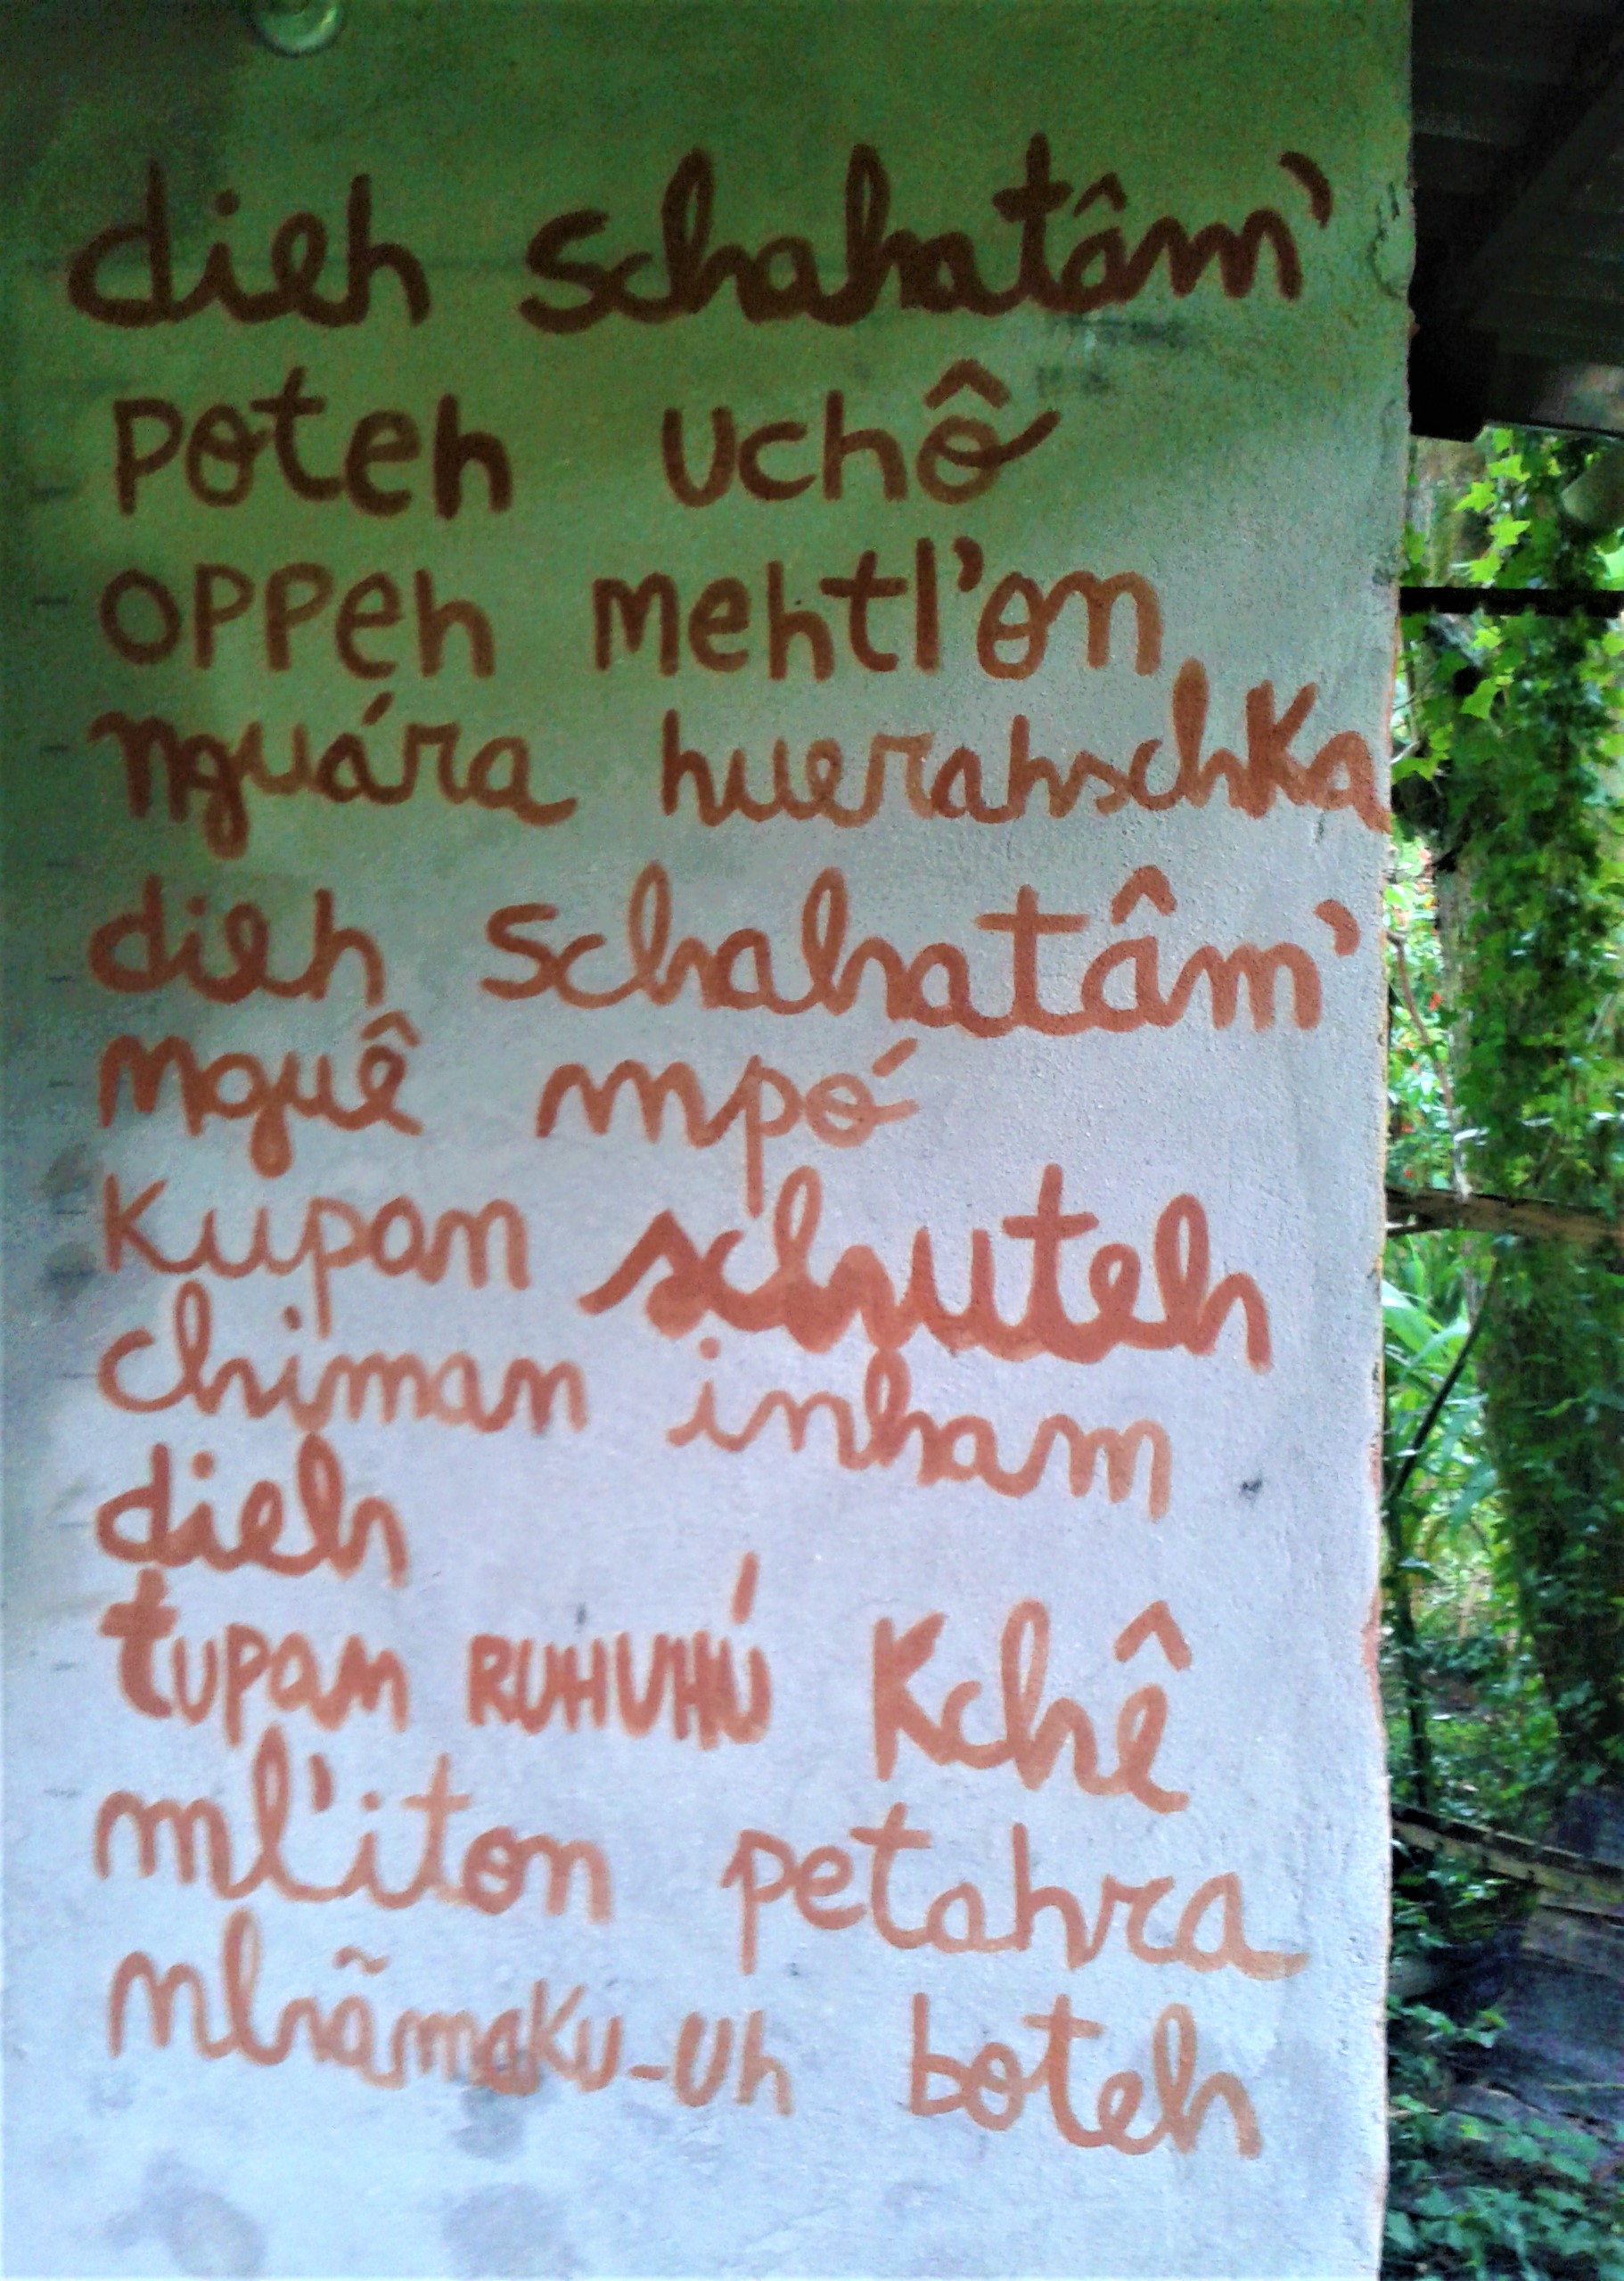 dieh schahatâm'
poteh uchô
oppeh mehtl'on
nguára huerahschka
dieh schahatâm'
mguê mpó
kupan schuteh
chiman inham
dieh
tupam RUHUHÚ kchê
ml'iton petahra
nhãmaku-uh boteh